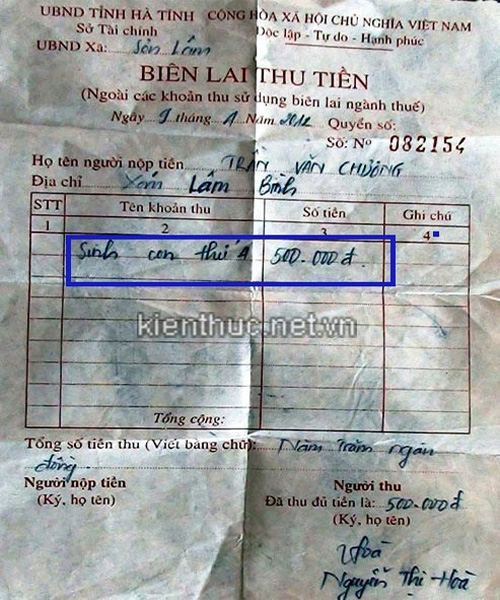 UBND TỈNH HÀ TĨNH CỘNG HÒA XÃ HỘI CHỦ NGHĨA VIỆT NAM
Sở Tài chính Độc lập - Tự do - Hạnh phúc
UBND Xã: Sơn Lâm
BIÊN LAI THU TIỀN
(Ngoài các khoản thu sử dụng biên lai ngành thuế)
Ngày 9 tháng 1 Năm 2012 Quyển số:
Số: Nº 082154
Họ tên người nộp tiền TRẦN VĂN CHƯƠNG
Địa chỉ Xóm Lâm Bình
STT Tên khoản thu Số tiền Ghi chú
1 2 3 4
Sinh con thứ 4 500.000đ
kienthuc.net.vn
Tổng cộng:
Tổng số tiền thu (Viết bằng chữ): Năm trăm ngàn
đồng
Người nộp tiền Người thu
(Ký, họ tên) Đã thu đủ tiền là: 500.000đ
(Ký, họ tên)
Hoà
Nguyễn Thị Hoà